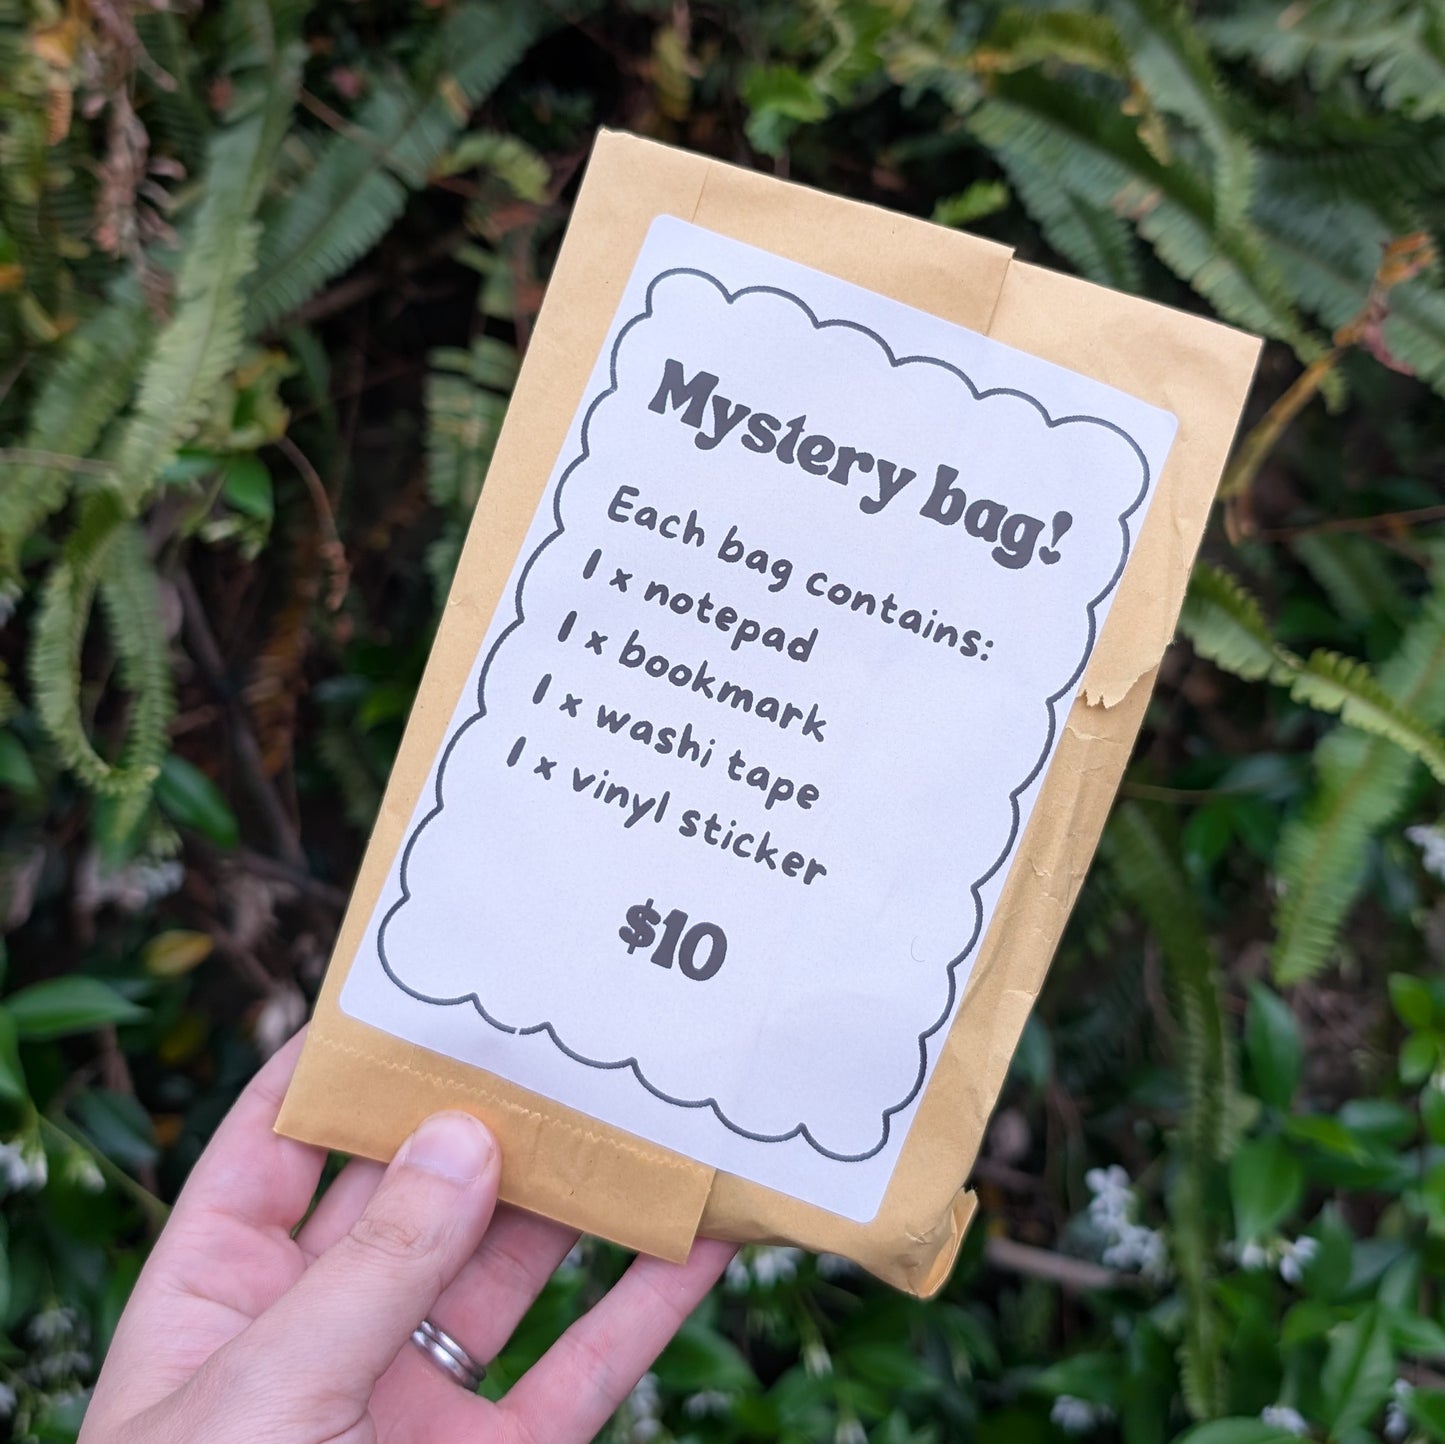 Mystery bag!
Each bag contains:
1 x notepad
1 x bookmark
1 x washi tape
1 x vinyl sticker
$10